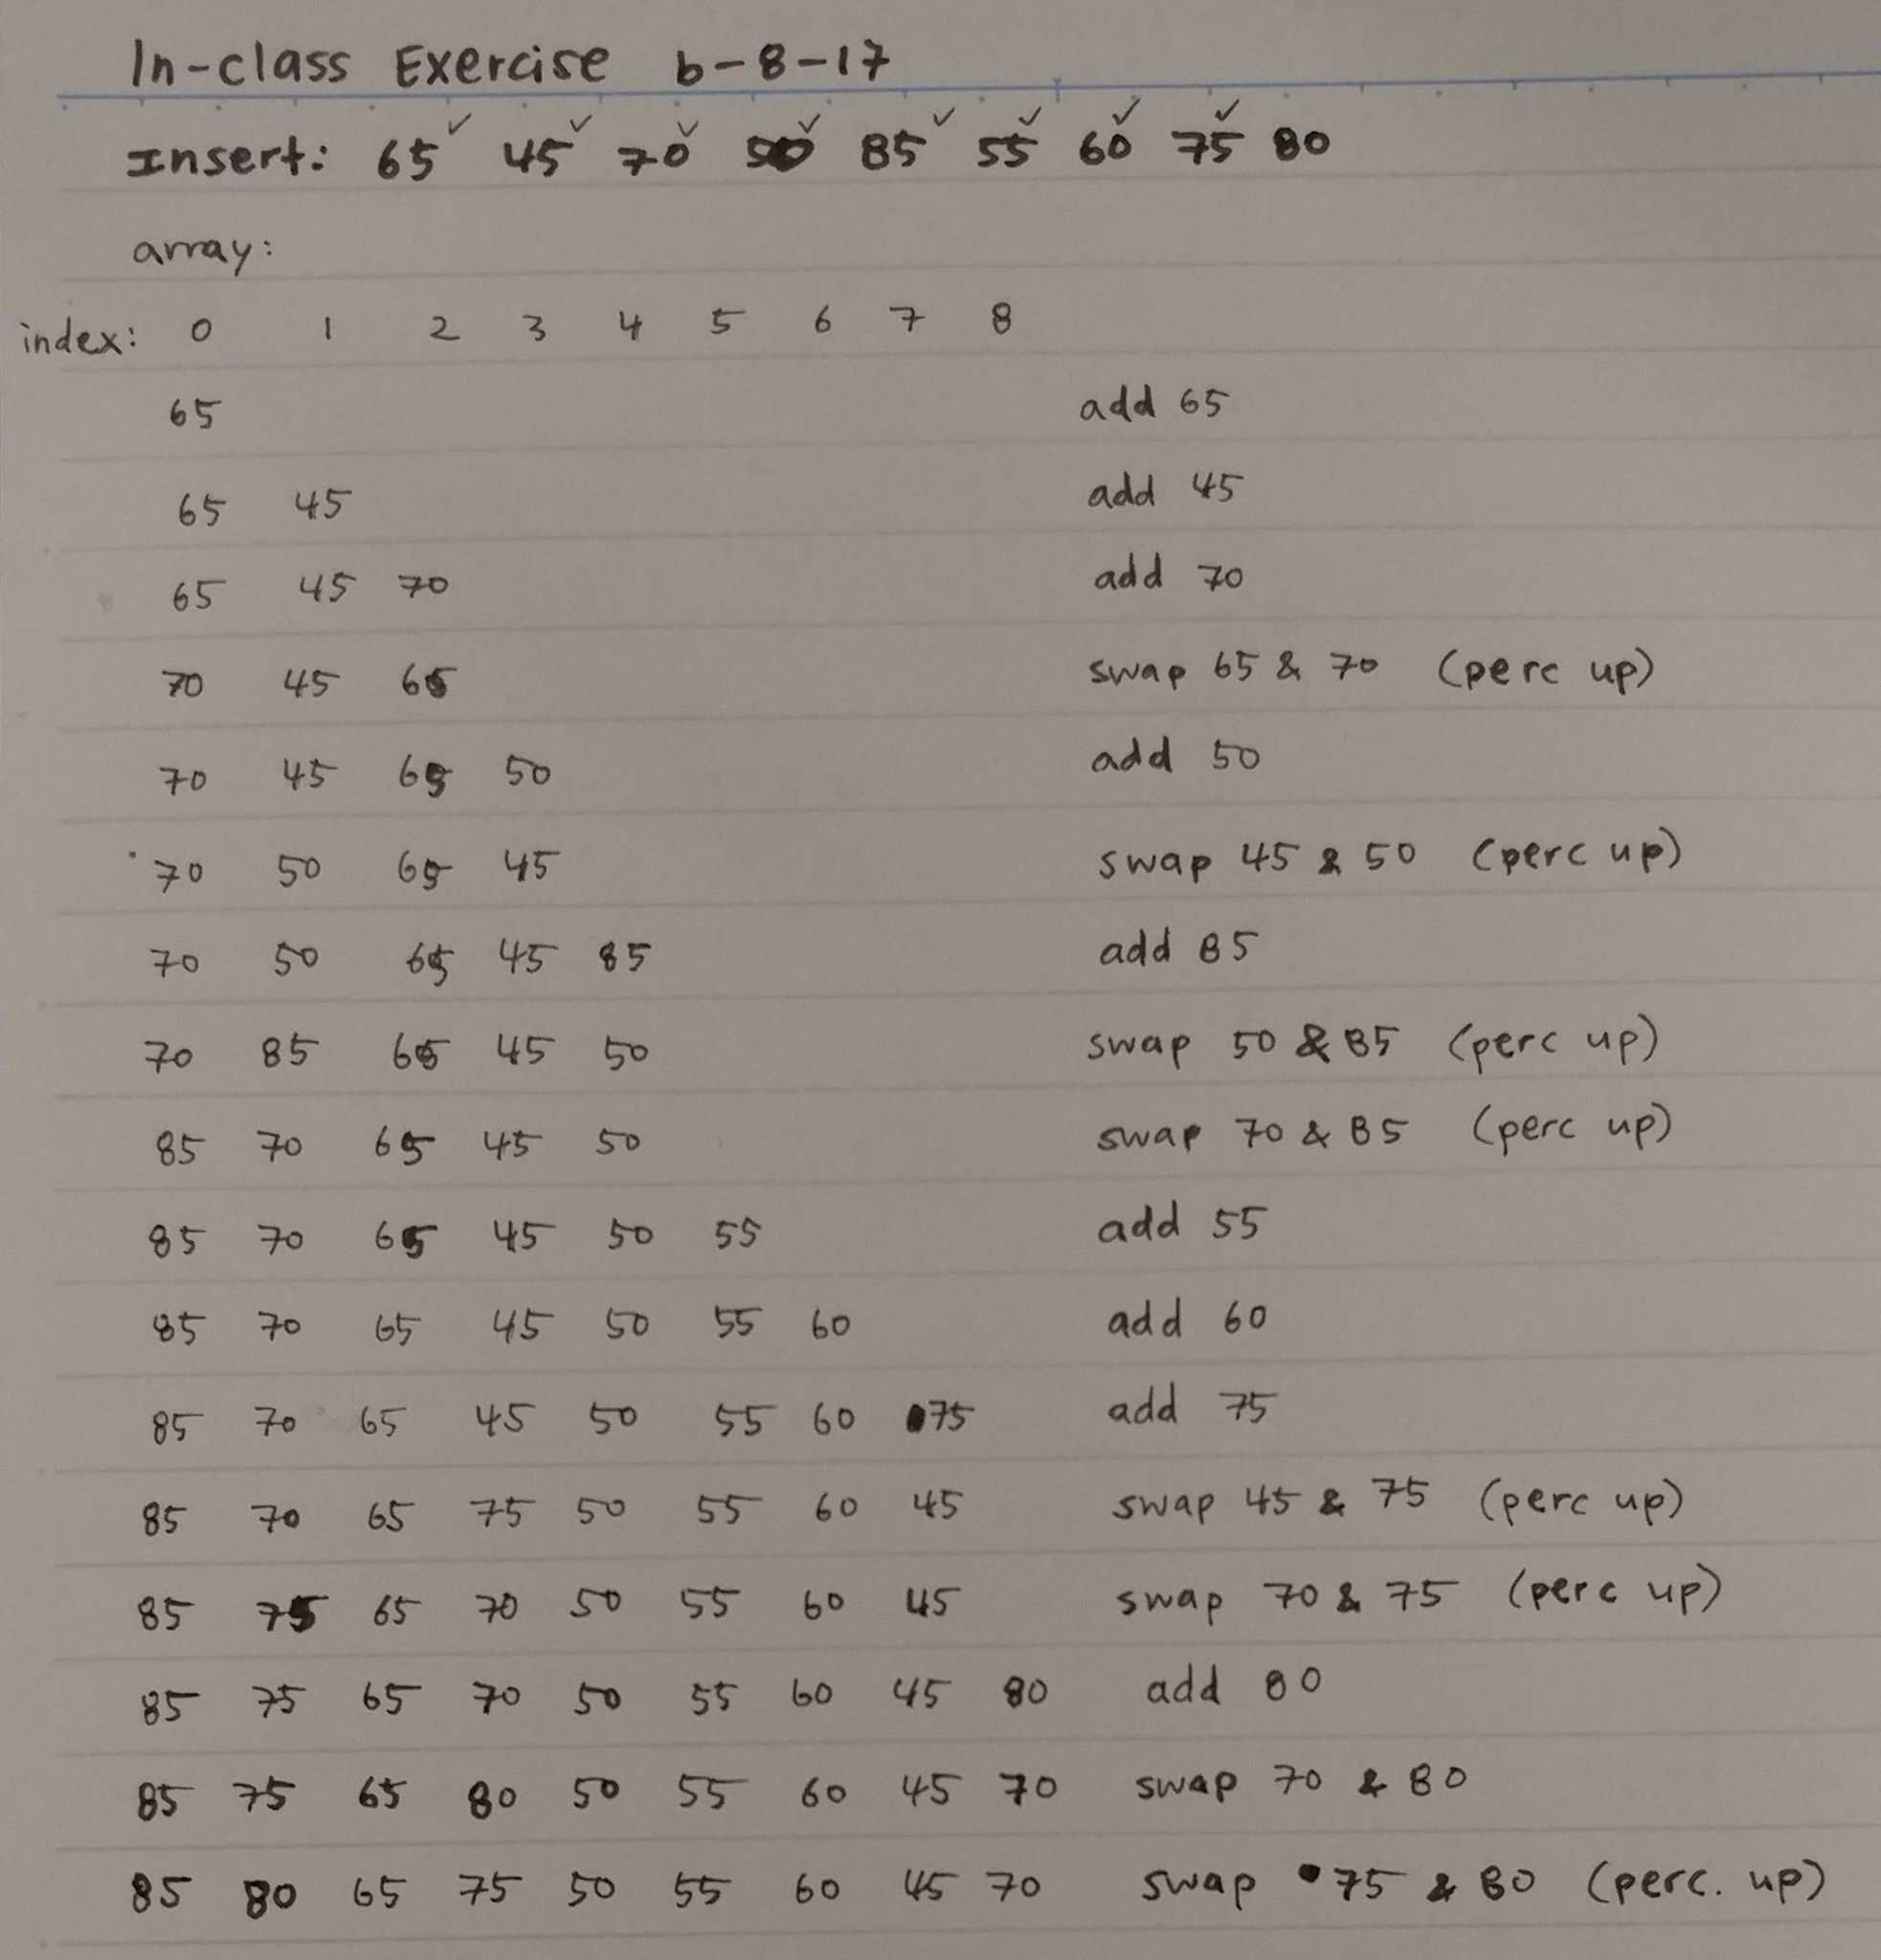 In-class Exercise 6-8-17
Insert: 65✓ 45✓ 70✓ 50✓ 85✓ 55✓ 60✓ 75✓ 80
array:
index: 0 1 2 3 4 5 6 7 8
65 add 65
65 45 add 45
65 45 70 add 70
70 45 65 swap 65 & 70 (perc up)
70 45 65 50 add 50
70 50 65 45 swap 45 & 50 (perc up)
70 50 65 45 85 add 85
70 85 65 45 50 swap 50 & 85 (perc up)
85 70 65 45 50 swap 70 & 85 (perc up)
85 70 65 45 50 55 add 55
85 70 65 45 50 55 60 add 60
85 70 65 45 50 55 60 75 add 75
85 70 65 75 50 55 60 45 swap 45 & 75 (perc up)
85 75 65 70 50 55 60 45 swap 70 & 75 (perc up)
85 75 65 70 50 55 60 45 80 add 80
85 75 65 80 50 55 60 45 70 swap 70 & 80
85 80 65 75 50 55 60 45 70 swap 75 & 80 (perc. up)